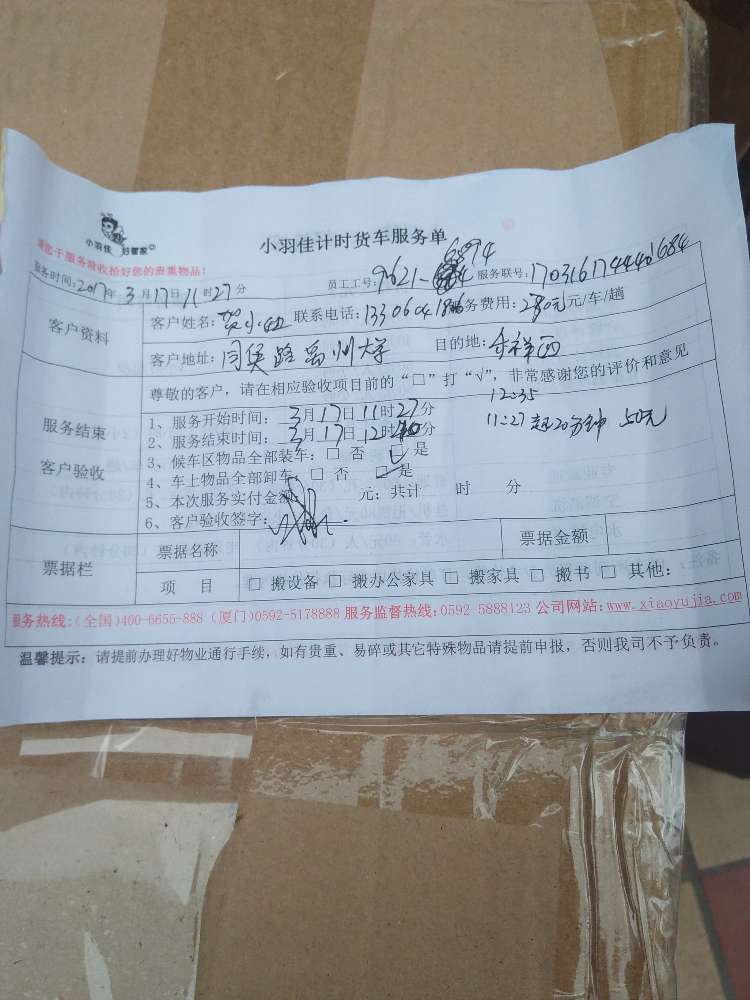 小羽佳 好管家
小羽佳计时货车服务单
请您于服务验收捡好您的贵重物品!
服务时间:2017年3月17日11时27分 员工工号:9621-6894 服务联号:17031617444401684
客户资料
客户姓名: 小 联系电话: 服务费用:280元元/车/趟
客户地址: 路 州大学 目的地: 祥西
服务结束
客户验收
尊敬的客户，请在相应验收项目前的“□”打“√”，非常感谢您的评价和意见
1、服务开始时间:3月17日11时27分
2、服务结束时间:3月17日12时40分
12:35
11:27 起20分钟 50元
3、候车区物品全部装车:□ 否 □ 是
4、车上物品全部卸车:□ 否 □ 是
5、本次服务实付金额: 元;共计 时 分
6、客户验收签字:
票据栏
票据名称 票据金额
项 目 □ 搬设备 □ 搬办公家具 □ 搬家具 □ 搬书 □ 其他:
服务热线:(全国)400-6655-888 (厦门)0592-5178888 服务监督热线:0592-5888123 公司网站:www.xiaoyujia.com
温馨提示：请提前办理好物业通行手续，如有贵重、易碎或其它特殊物品请提前申报，否则我司不予负责。